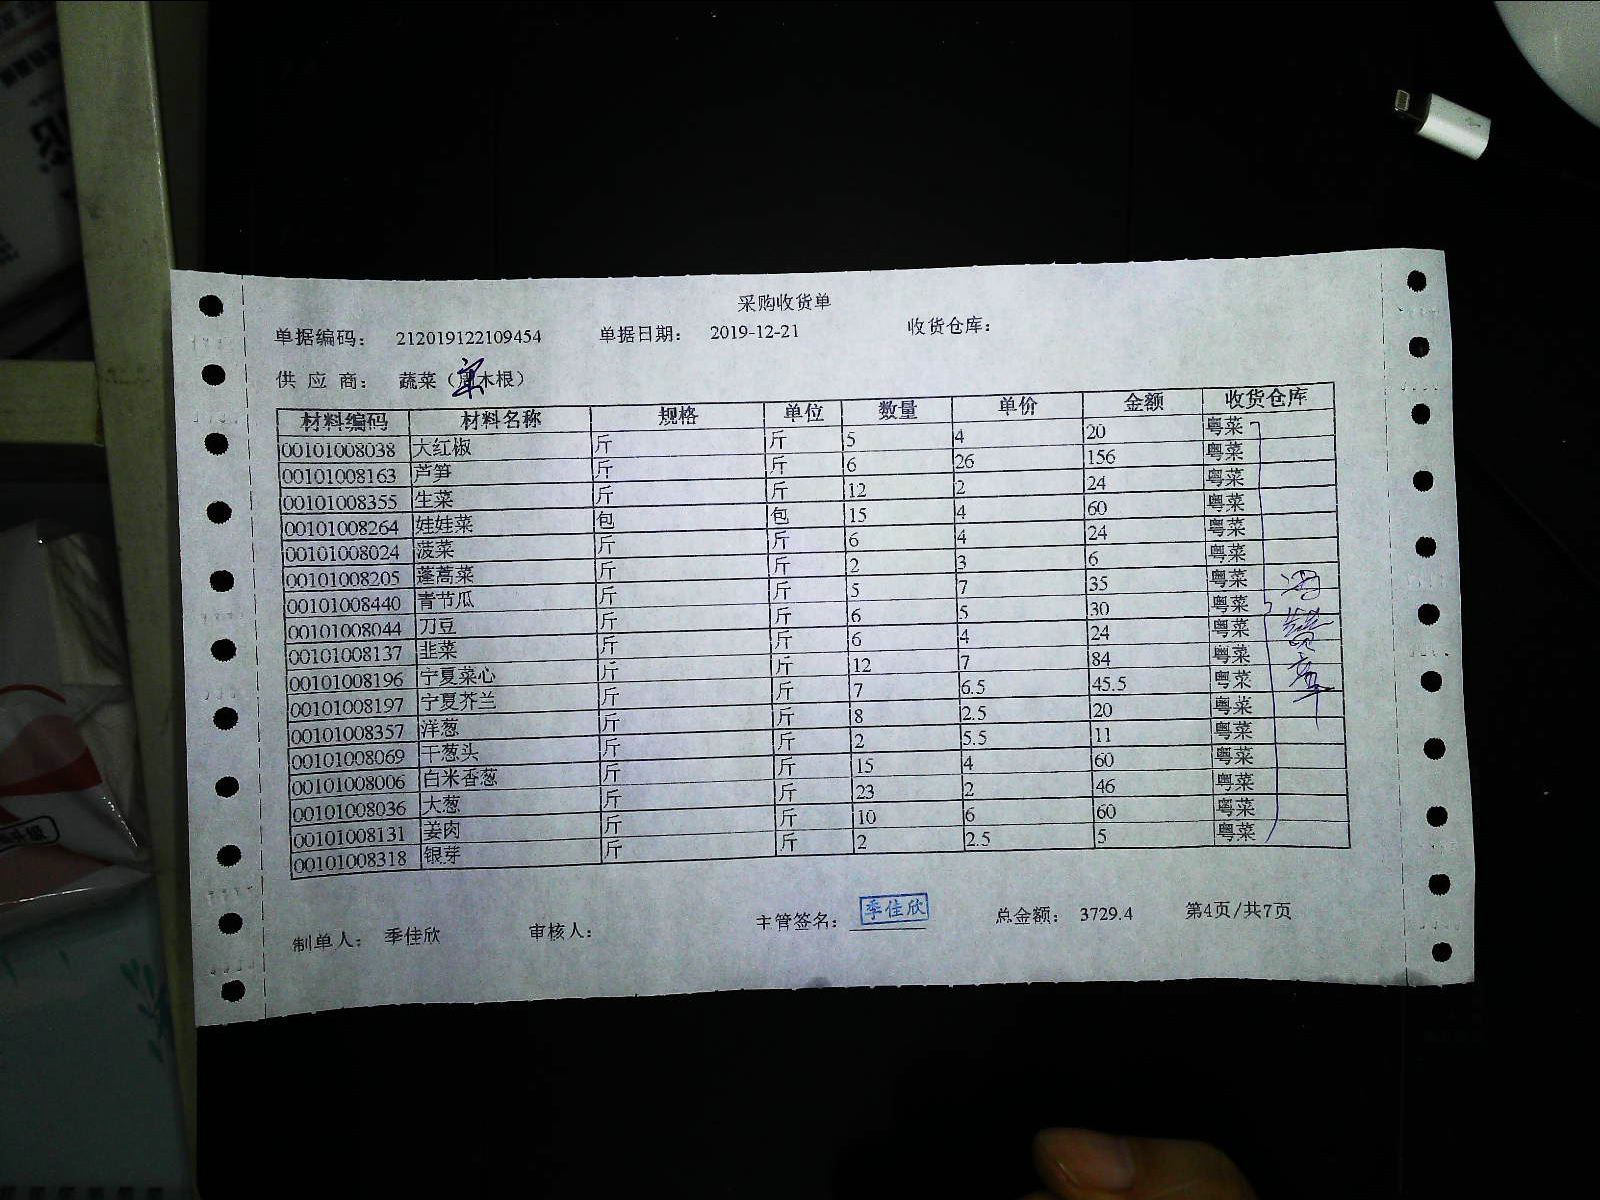 采购收货单
单据编码： 212019122109454 单据日期： 2019-12-21 收货仓库：
供 应 商： 蔬菜（木根）
材料编码 材料名称 规格 单位 数量 单价 金额 收货仓库
00101008038 大红椒 斤 斤 5 4 20 粤菜
00101008163 芦笋 斤 斤 6 26 156 粤菜
00101008355 生菜 斤 斤 12 2 24 粤菜
00101008264 娃娃菜 包 包 15 4 60 粤菜
00101008024 菠菜 斤 斤 6 4 24 粤菜
00101008205 蓬蒿菜 斤 斤 2 3 6 粤菜
00101008440 青节瓜 斤 斤 5 7 35 粤菜
00101008044 刀豆 斤 斤 6 5 30 粤菜
00101008137 韭菜 斤 斤 6 4 24 粤菜
00101008196 宁夏菜心 斤 斤 12 7 84 粤菜
00101008197 宁夏芥兰 斤 斤 7 6.5 45.5 粤菜
00101008357 洋葱 斤 斤 8 2.5 20 粤菜
00101008069 干葱头 斤 斤 2 5.5 11 粤菜
00101008006 白米香葱 斤 斤 15 4 60 粤菜
00101008036 大葱 斤 斤 23 2 46 粤菜
00101008131 姜肉 斤 斤 10 6 60 粤菜
00101008318 银芽 斤 斤 2 2.5 5 粤菜
制单人： 季佳欣 审核人： 主管签名： 季佳欣 总金额： 3729.4 第4页/共7页